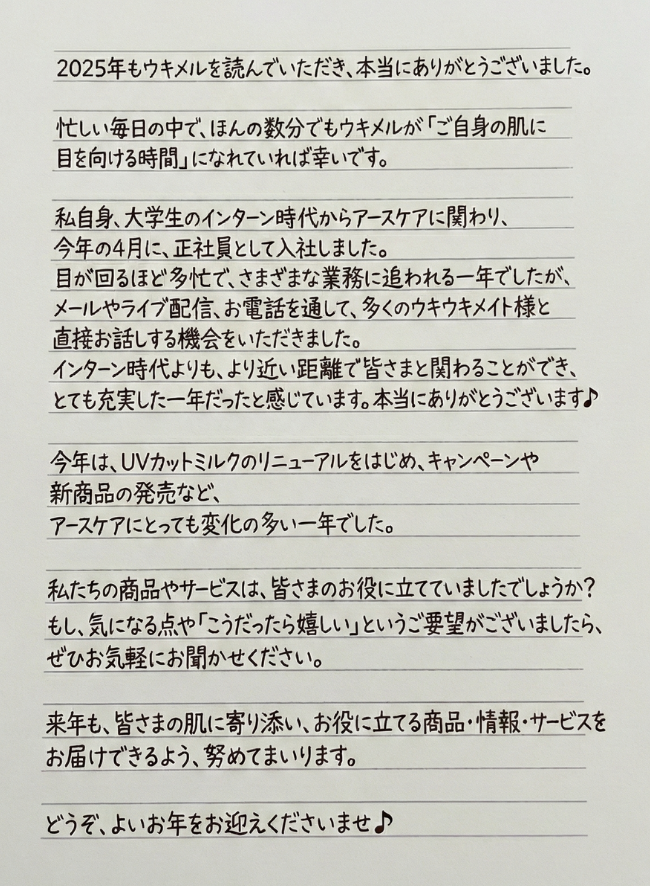 2025年もウキメルを読んでいただき、本当にありがとうございました。
忙しい毎日の中で、ほんの数分でもウキメルが「ご自身の肌に
目を向ける時間」になれていれば幸いです。
私自身、大学生のインターン時代からアースケアに関わり、
今年の4月に、正社員として入社しました。
目が回るほど多忙で、さまざまな業務に追われる一年でしたが、
メールやライブ配信、お電話を通して、多くのウキウキメイト様と
直接お話しする機会をいただきました。
インターン時代よりも、より近い距離で皆さまと関わることができ、
とても充実した一年だったと感じています。本当にありがとうございます♪
今年は、UVカットミルクのリニューアルをはじめ、キャンペーンや
新商品の発売など、
アースケアにとっても変化の多い一年でした。
私たちの商品やサービスは、皆さまのお役に立てていましたでしょうか?
もし、気になる点や「こうだったら嬉しい」というご要望がございましたら、
ぜひお気軽にお聞かせください。
来年も、皆さまの肌に寄り添い、お役に立てる商品・情報・サービスを
お届けできるよう、努めてまいります。
どうぞ、よいお年をお迎えくださいませ♪